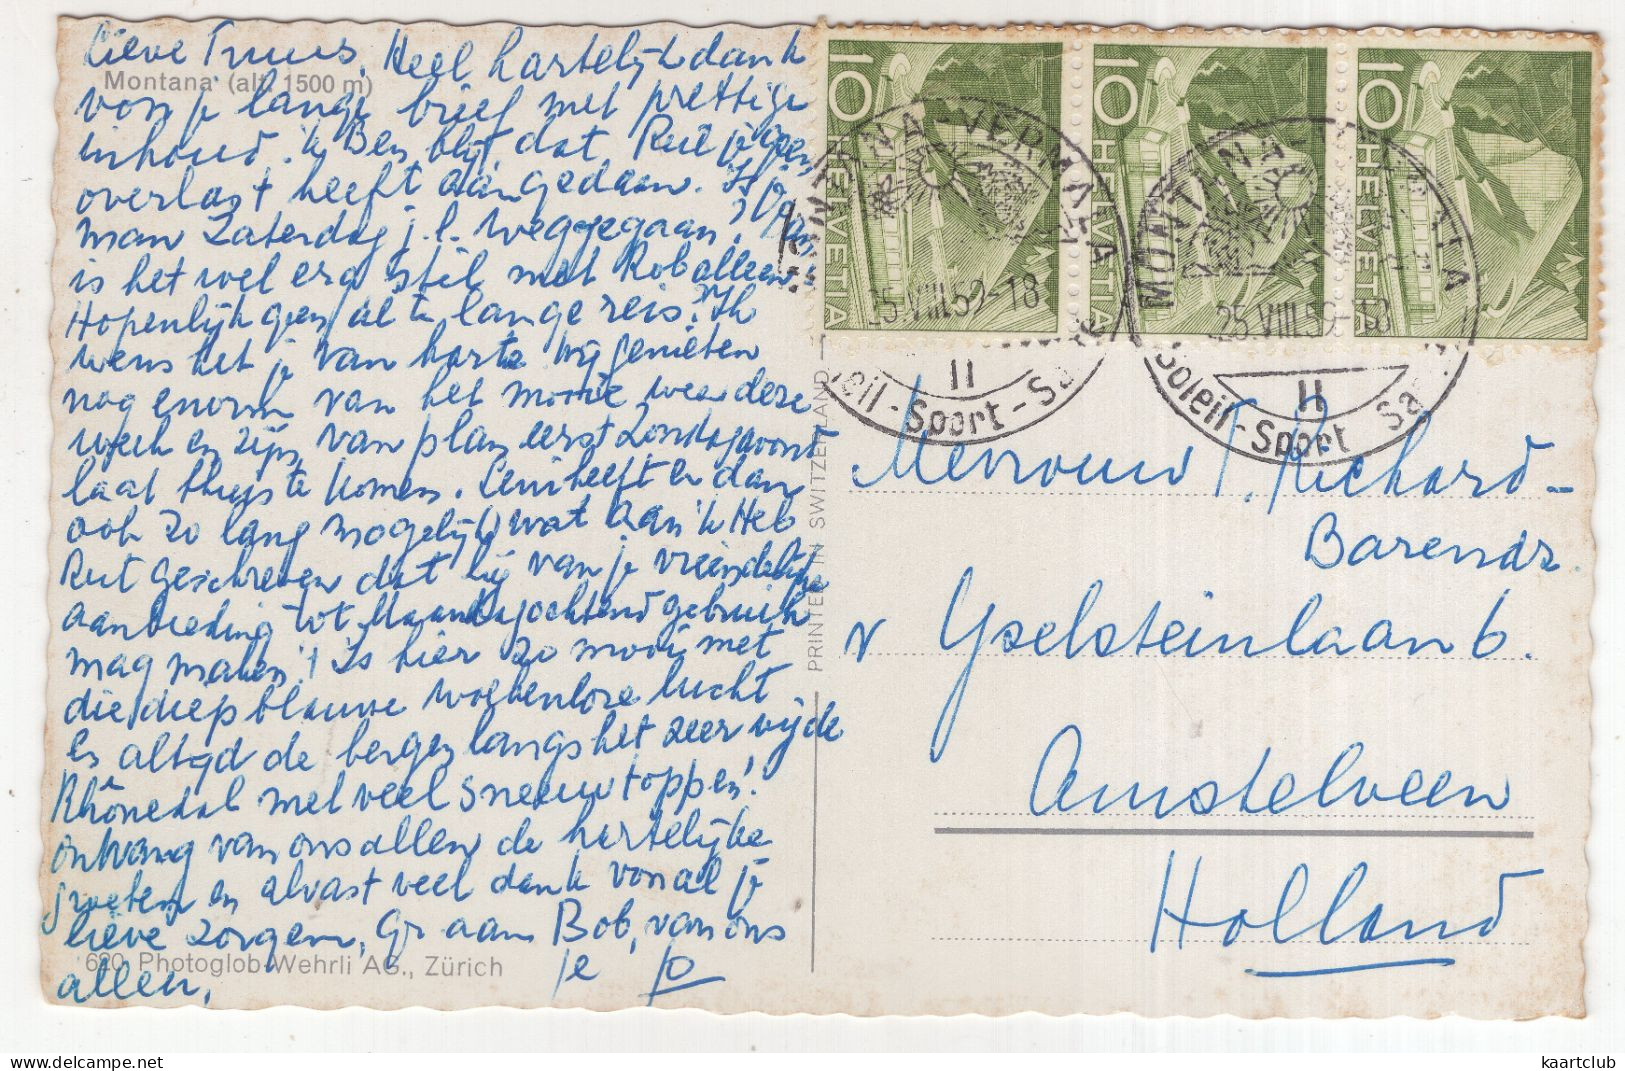 Lieve Truus, Heel hartelijk dank
Montana (alt. 1500 m)
voor je lange brief met prettige
inhoud. ik Ben blij, dat Rut je geen
overlast heeft aangedaan. Is je
man Zaterdag j.l. weggegaan?
is het wel erg stil met Rob alleen.
Hopenlijk geen al te lange reis? Ik
wens het je van harte. Wij genieten
nog enorm van het mooie weer deze
week en zijn van plan eerst Zondagavond
laat thuis te komen. heeft er dan
ook zo lang mogelijk wat aan. 'k Heb
Rut geschreven dat hij van je vriendelijke
aanbieding tot Maandagochtend gebruik
mag maken! 't Is hier zo mooi met
die diep blauwe wolkenloze lucht
En altijd de bergen langs het zeer wijde
Rhônedal met veel sneeuwtoppen!
Ontvang van ons allen de hartelijke
groeten en alvast veel dank voor al je
lieve zorgen, Gr aan Bob, van ons
690 Photoglob-Wehrli AG., Zürich
allen, je Jo
PRINTED IN SWITZERLAND
10 HELVETIA
10 HELVETIA
10 HELVETIA
MONTANA-VERMALA
25.VIII.59-18
II
Soleil-Sport-Sa
MONTANA
25.VIII.59-18
II
Soleil-Sport Sa
Mevrouw T. Richard-
Barendz.
Yselsteinlaan 6.
Amstelveen
Holland
kaartclub